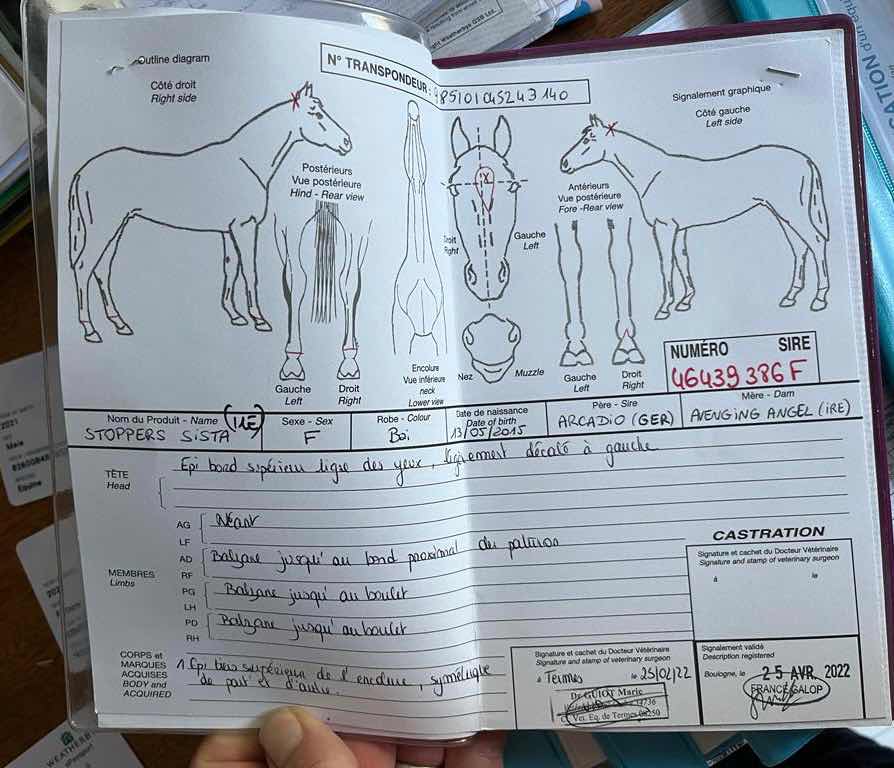 Outline diagram
Côté droit
Right side
N° TRANSPONDEUR :
985101045243140
Signalement graphique
Côté gauche
Left side
Postérieurs
Vue postérieure
Hind - Rear view
Antérieurs
Vue postérieure
Fore -Rear view
Droit
Right
Gauche
Left
Gauche
Left
Droit
Right
Encolure
Vue inférieure
neck
Lower view
Nez
Muzzle
Gauche
Left
Droit
Right
NUMÉRO SIRE
46439386F
Nom du Produit - Name
(IRE)
STOPPERS SISTA
Sexe - Sex
F
Robe - Colour
Bai
Date de naissance
Date of birth
13/05/2015
Père - Sire
ARCADIO (GER)
Mère - Dam
AVENGING ANGEL (IRE)
TÊTE
Head
Epi bord supérieur ligne des yeux, légèrement décalé à gauche
MEMBRES
Limbs
AG
LF
Néant
AD
RF
Balzane jusqu'au bord proximal du paturon
PG
LH
Balzane jusqu'au boulet
PD
RH
Balzane jusqu'au boulet
CORPS et
MARQUES
ACQUISES
BODY and
ACQUIRED
1 Epi tiers supérieur de l'encolure, symétrique
de part et d'autre.
CASTRATION
Signature et cachet du Docteur Vétérinaire
Signature and stamp of veterinary surgeon
à le
Signature et cachet du Docteur Vétérinaire
Signature and stamp of veterinary surgeon
à Termes le 25/02/22
Dr GUIOT Marie
Vet. Eq. de Termes
Signalement validé
Description registered
Boulogne, le 25 AVR. 2022
FRANCE GALOP